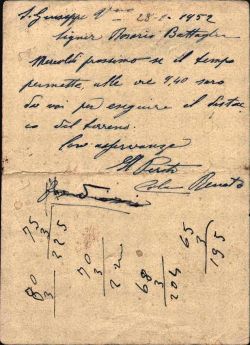 S. Giuseppe Jato 28-1- 1952
Signor Rosario Battaglia
Mercoldì prossimo se il tempo
permette, alle ore 9,40 sarò
da voi per eseguire il distac
co del terreno.
Con osservanza
Il Perito
Renato
75
3
225
80
3
70
3
68
3
204
65
3
195